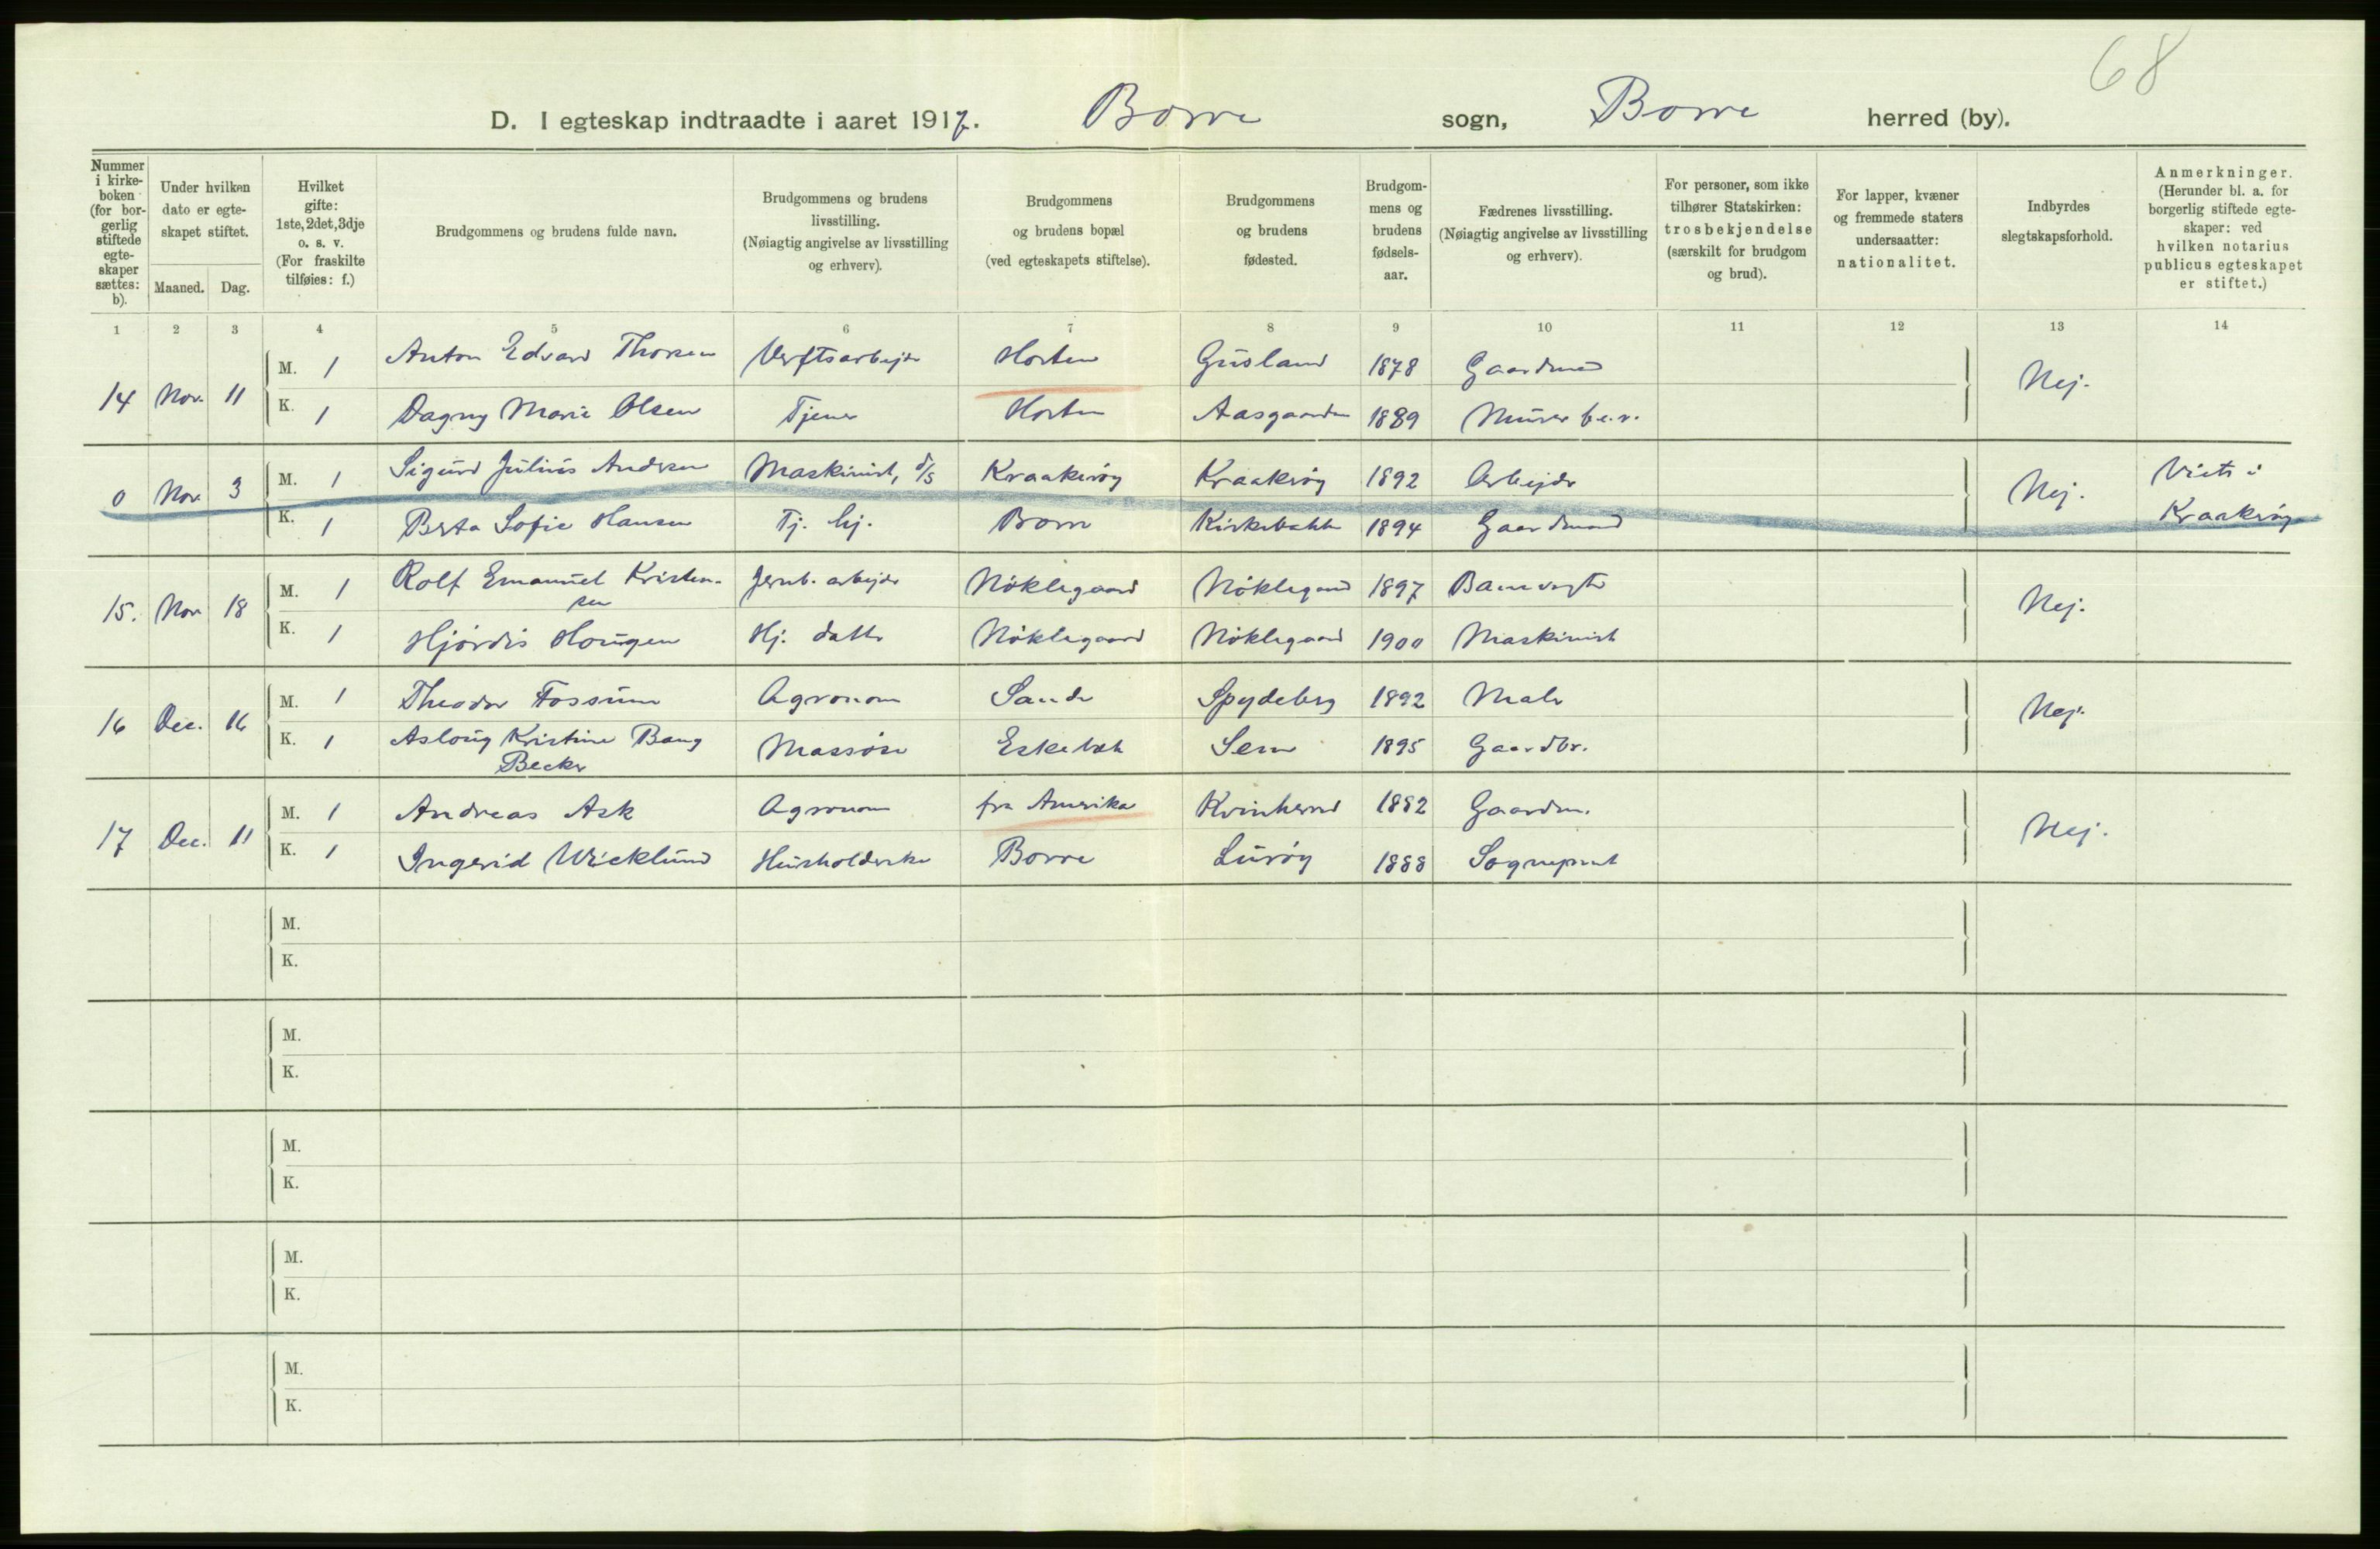 68
D. I egteskap indtraadte i aaret 1917. Borre sogn, Borre herred (by).
Nummer i kirke-boken (for bor-gerlig stiftede egte-skaper sættes: b).
Under hvilken dato er egte-skapet stiftet.
Maaned. Dag.
Hvilket gifte: 1ste, 2det, 3dje o. s. v. (For fraskilte tilføies: f.)
Brudgommens og brudens fulde navn.
Brudgommens og brudens livsstilling. (Nøiagtig angivelse av livsstilling og erhverv).
Brudgommens og brudens bopæl (ved egteskapets stiftelse).
Brudgommens og brudens fødested.
Brudgom-mens og brudens fødsels-aar.
Fædrenes livsstilling. (Nøiagtig angivelse av livsstilling og erhverv).
For personer, som ikke tilhører Statskirken: trosbekjendelse (særskilt for brudgom og brud).
For lapper, kvæner og fremmede staters undersaatter: nationalitet.
Indbyrdes slegtskapsforhold.
Anmerkninger. (Herunder bl. a. for borgerlig stiftede egte-skaper: ved hvilken notarius publicus egteskapet er stiftet.)
1 2 3 4 5 6 7 8 9 10 11 12 13 14
14 Nov. 11 M. 1 Anton Edvard Thorsen Verftsarbejder Horten 1878 Gaardmand Nej.
K. 1 Dagny Marie Olsen Tjener Horten Aasgaarden 1889 Murer
0 Nov. 3 M. 1 Sigurd Julius Andersen Maskinist, d/s Kraakerøy Kraakerøy 1892 Arbejder Nej. Viet i
K. 1 Berta Sofie Hansen Tj. hj. Borre Kirkebakken 1894 Gaardmand Kraakerøy
15. Nov 18 M. 1 Rolf Emanuel Kristen-
sen Jernb. arbejder Nøklegaard Nøklegaard 1897 Banevogter Nej.
K. 1 Hjørdis Hougen Hj. datter Nøklegaard Nøklegaard 1900 Maskinist
16 Dec. 16 M. 1 Theodor Fossum Agronom Sande Spydeberg 1892 Maler Nej.
K. 1 Aslaug Kristine Bang
Becker Massøse Eskebæk Sem 1895 Gaardbr.
17 Dec. 11 M. 1 Andreas Ask Agronom fra Amerika Kvinherred 1882 Gaardm. Nej.
K. 1 Ingerid Wicklund Husholderske Borre Lurøy 1888 Sogneprest
M.
K.
M.
K.
M.
K.
M.
K.
M.
K.